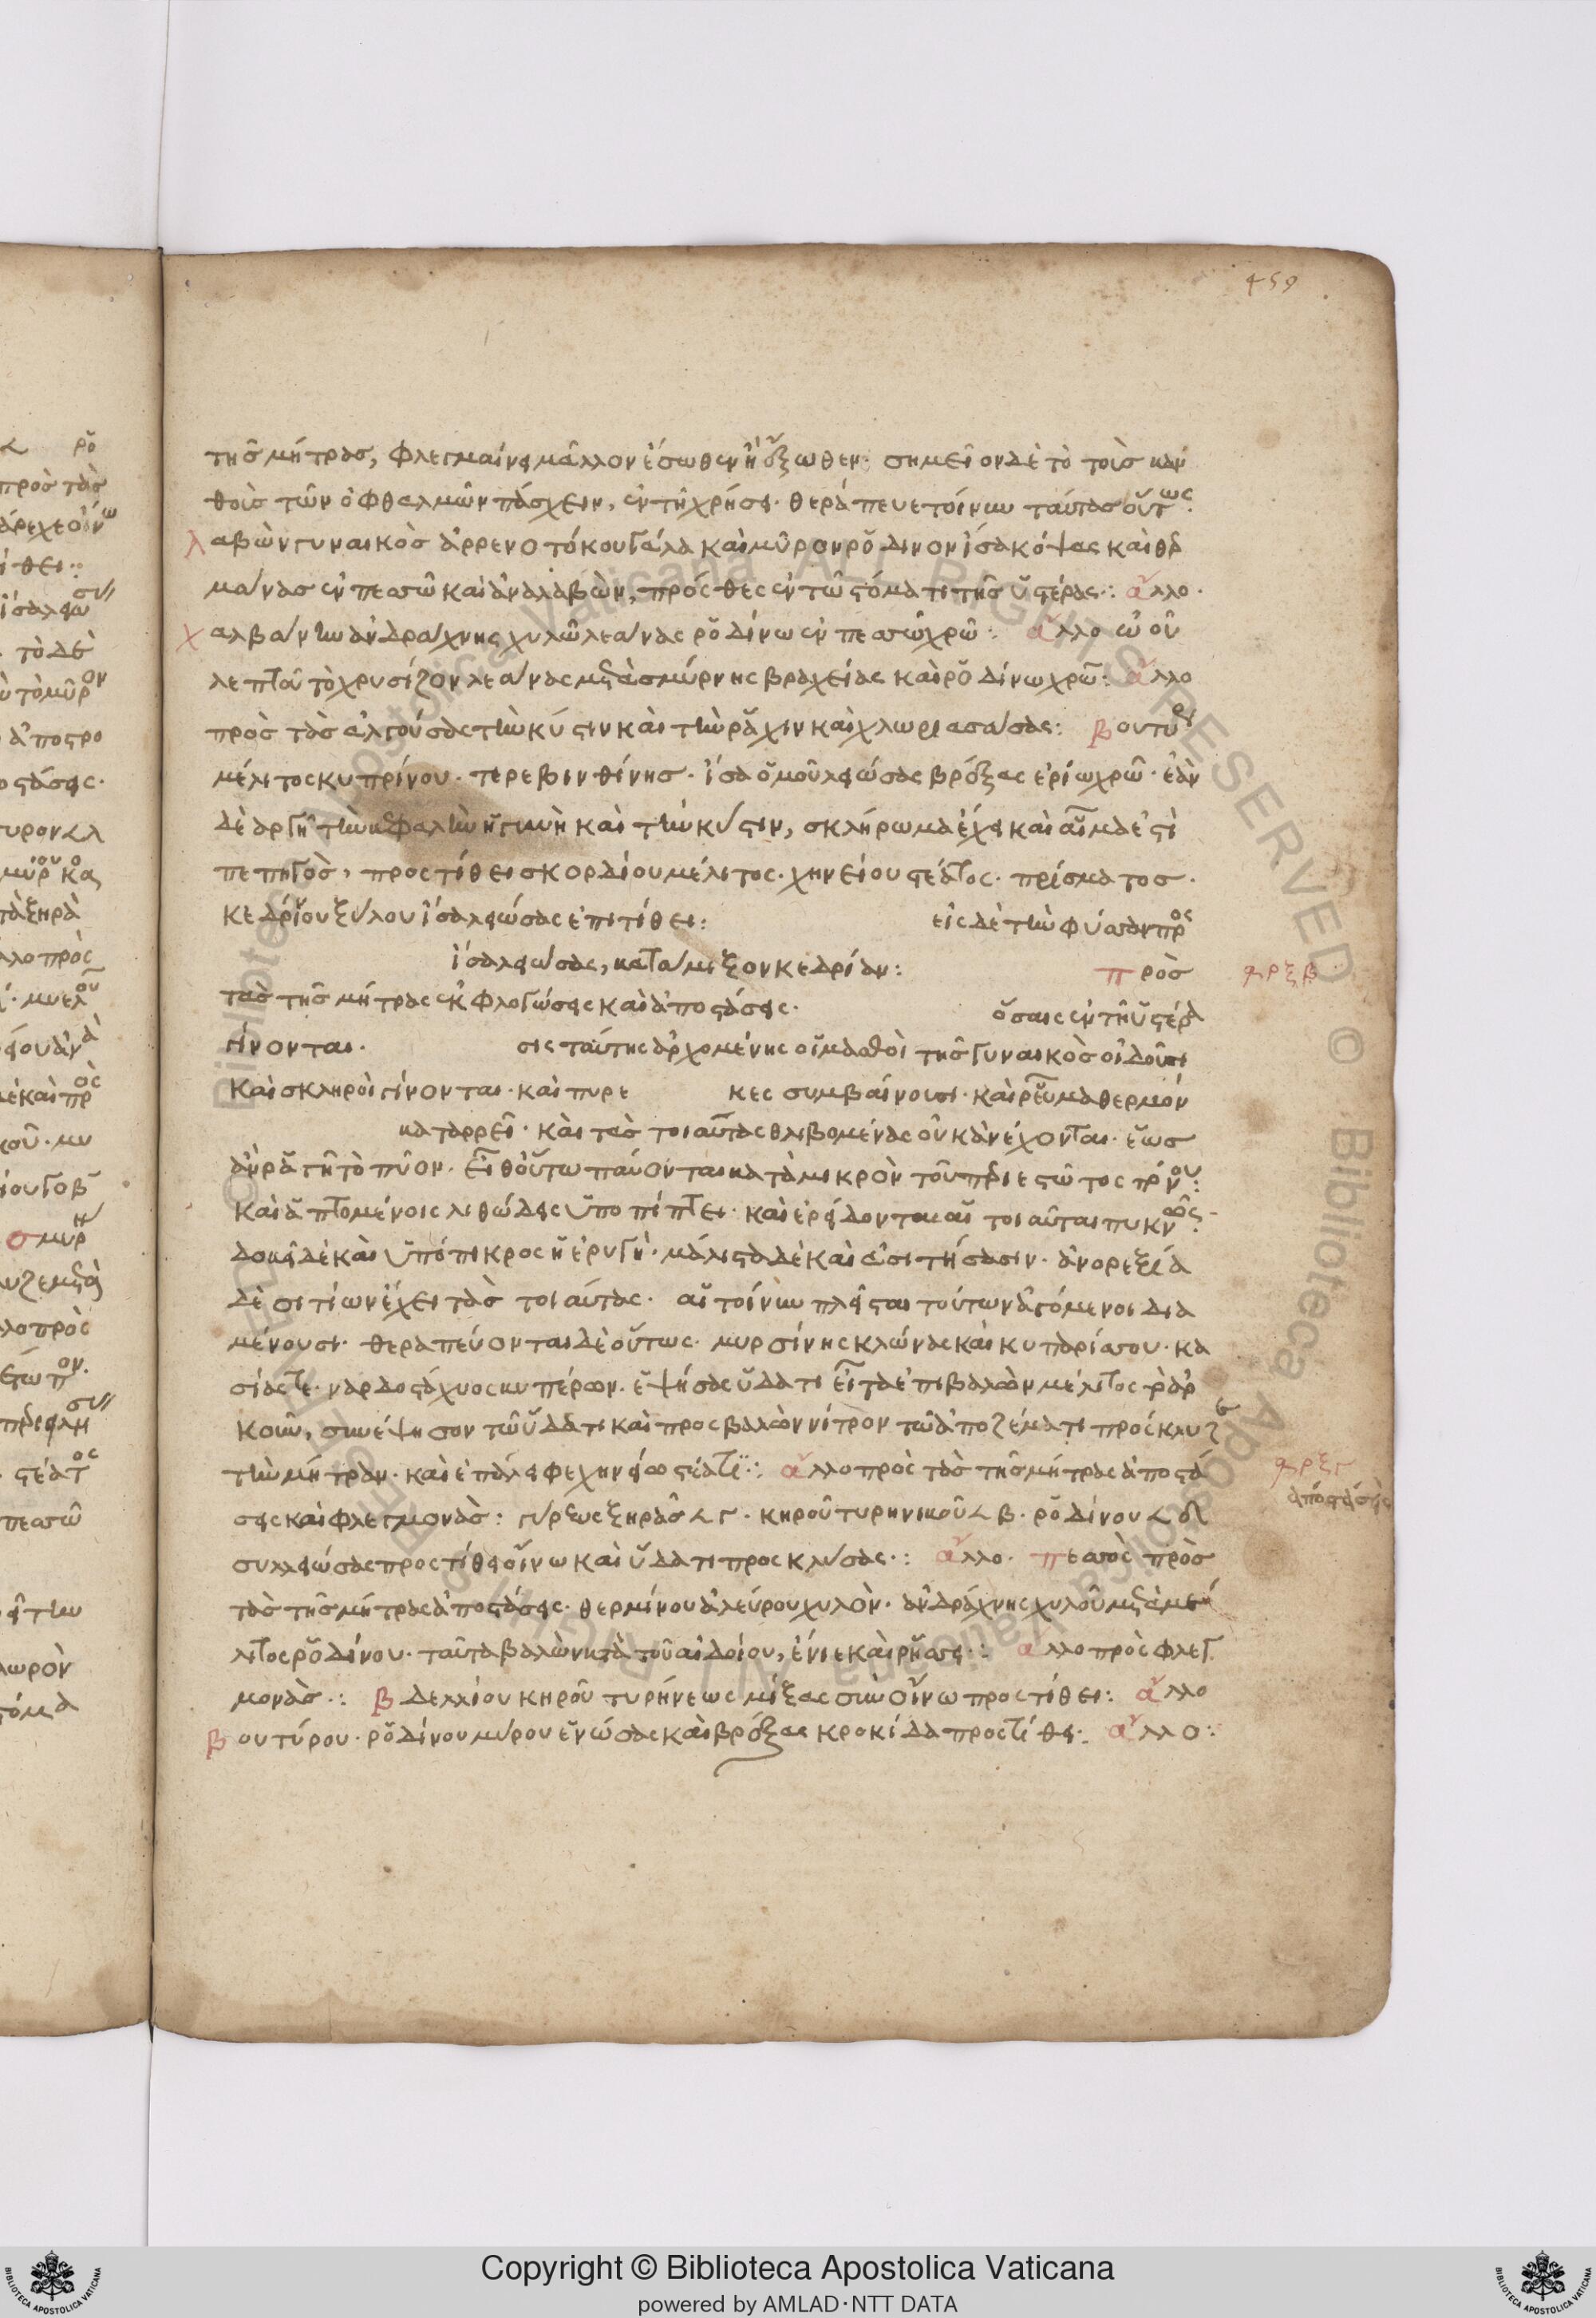 459
τῆς μήτρας, φλεγμαίνει μᾶλλον ἔσωθεν ἢ ἔξωθεν· σημεῖον δὲ τὸ τοῖς καν
θοῖς τῶν ὀφθαλμῶν πάσχειν, ἐν τῇ χρήσει· θεράπευε τοίνυν ταύτας οὕτως·
λαβὼν γυναικὸς ἀρρενοτόκου γάλα καὶ μῦρον ῥόδινον ἴσα κόψας καὶ θερ
μάνας ἐν πεσσῶ καὶ ἀναλαβὼν, πρόσθες ἐν τῶ στόματι τῆς ὑστέρας: ἄλλο·
χαλβάνην ἀνδράχνης χυλῶ λεάνας ῥοδίνω ἐν πεσσῶ χρῶ: ἄλλο ὠοῦ
λεπτοῦ τὸ χρυσίζον λεάνας μετὰ σμύρνης βραχείας καὶ ῥοδίνω χρῶ: ἄλλο
πρὸς τὰς ἀλγούσας τὴν κύστιν καὶ τὴν ῥάχιν καὶ χλωριασάσας: βουτύρου
μέλιτος κυπρίνου· τερεβινθίνης· ἴσα ὁμοῦ λειώσας βρέξας ἐρίω χρῶ· ἐὰν
δὲ ἀλγῆ τὴν κεφαλὴν ἡ γυνὴ καὶ τὴν κύστιν, σκλήρωμα ἔχει καὶ αἷμα ἐστὶ
πεπηγὸς, προστίθει σκορδίου μέλιτος· χηνείου στέατος· πρίσματος·
κεδρίου ξύλου ἴσα λειώσας ἐπιτίθει: εἰς δὲ τὴν φύσαν πρὸς
ἴσα λειώσας, κατάμιξον κεδρίαν: πρὸς
φρξβ
τὰς τῆς μήτρας ἐκφλογώσεις καὶ ἀποστάσεις· ὅσαις ἐν τῆ ὑστέρα
γίνονται· σις ταύτης ἀρχομένης οἱ μασθοὶ τῆς γυναικὸς οἰδοῦσι
καὶ σκληροὶ γίνονται· καὶ πυρε κες συμβαίνουσι· καὶ ῥεῦμα θερμόν
καταρρεῖ· καὶ τὰς τοιαύτας θλιβομένας οὐκ ἀνέχονται· ἕως
ἀνραγῆ τὸ πῦον· εἶθ' οὕτω παύονται κατὰ μικρὸν τοῦ περιεστῶτος πόνου:
καὶ ἁπτομένοις λιθώδεις ὑποπίπτει· καὶ ἐρείδονται αἱ τοιαῦται πυκνῶς·
δοκεῖ δὲ καὶ ὑπόπικρος ἡ ἐρυγή· μάλιστα δὲ καὶ ἀσιτήσασιν· ἀνορεξία
δὲ σιτίων ἔχει τὰς τοιαύτας· αἱ τοίνυν πλεῖσται τούτων ἀγόμενοι δια
μένουσι· θεραπεύονται δὲ οὕτως· μυρσίνης κλώνας καὶ κυπαρίσσου· κα
σίας τε· ναρδοστάχυος κυπέρων· ἑψήσας ὕδατι εἶτα ἐπιβαλὼν μέλιτος τὸ ἀρ
κοῦν, συνέψησον τῶ ὕδατι καὶ προσβαλὼν νίτρον τῶ ἀποζέματι πρόσκλυζε
τὴν μήτραν· καὶ ἐπάλειφε χηνείω στέατι: ἄλλο πρὸς τὰς τῆς μήτρας ἀποστά
φρξγ
ἀποστάσεις
σεις καὶ φλεγμονὰς: γύρεως ξηρᾶς 𐅻 γ· κηροῦ τυρηνικοῦ 𐅻 β· ῥοδίνου 𐅻 δ
συλλειώσας προστίθει οἴνω καὶ ὕδατι προσκλύσας: ἄλλο· πεσσὸς πρὸς
τὰς τῆς μήτρας ἀποστάσεις· θερμίνου ἀλεύρου χυλὸν· ἀνδράχνης χυλοῦ μετὰ μέ
λιτος ῥοδίνου· ταῦτα βαλὼν κατὰ τοῦ αἰδοίου, ἔνιε καὶ ῥήσσει: ἄλλο πρὸς φλεγ
μονάς: βδελλίου κηροῦ τυρήνεως μίξας σὺν οἴνω προστίθει: ἄλλο
βουτύρου· ῥοδίνου μύρου ἑνώσας καὶ βρέξας κροκίδα προστίθει: ἄλλο:
Copyright © Biblioteca Apostolica Vaticana
powered by AMLAD·NTT DATA